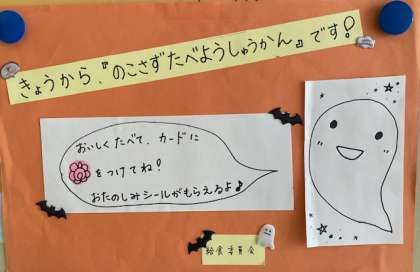 きょうから、『のこさずたべようしゅうかん』です!
おいしくたべて、カードに
をつけてね!
おたのしみシールがもらえるよ♪
給食委員会